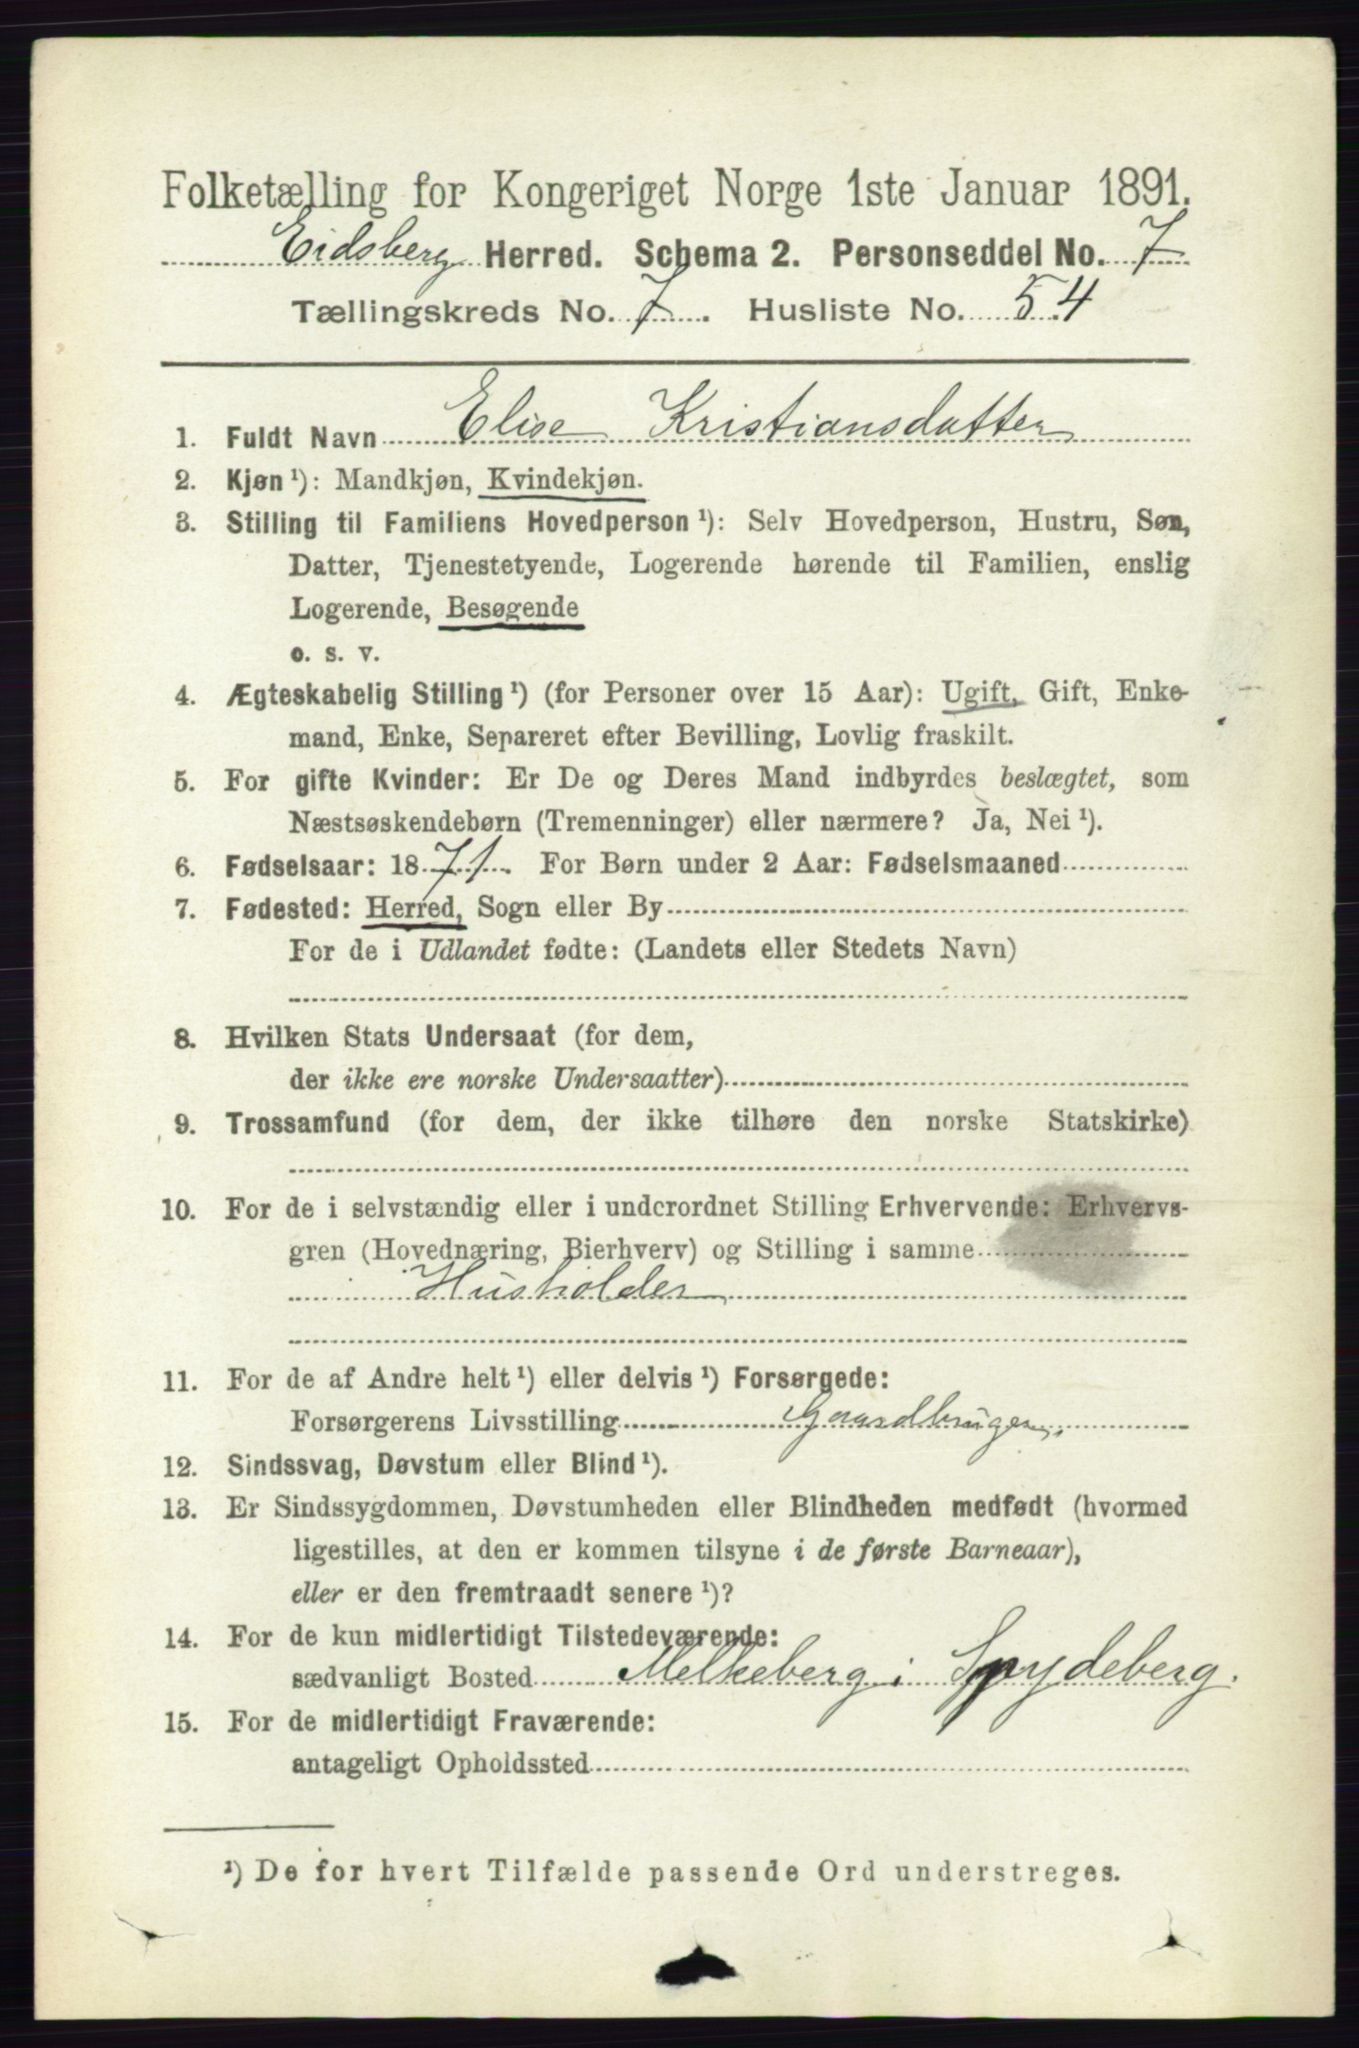 Folketælling for Kongeriget Norge 1ste Januar 1891.
Eidsberg Herred. Schema 2. Personseddel No. 7
Tællingskreds No. 7. Husliste No. 54
1. Fuldt Navn Elise Kristiansdatter
2. Kjøn ¹): Mandkjøn, Kvindekjøn.
3. Stilling til Familiens Hovedperson ¹): Selv Hovedperson, Hustru, Søn,
Datter, Tjenestetyende, Logerende hørende til Familien, enslig
Logerende, Besøgende
o. s. v.
4. Ægteskabelig Stilling ¹) (for Personer over 15 Aar): Ugift, Gift, Enke-
mand, Enke, Separeret efter Bevilling, Lovlig fraskilt.
5. For gifte Kvinder: Er De og Deres Mand indbyrdes beslægtet, som
Næstsøskendebørn (Tremenninger) eller nærmere? Ja, Nei ¹).
6. Fødselsaar: 1871. For Børn under 2 Aar: Fødselsmaaned
7. Fødested: Herred, Sogn eller By
For de i Udlandet fødte: (Landets eller Stedets Navn)
8. Hvilken Stats Undersaat (for dem,
der ikke ere norske Undersaatter)
9. Trossamfund (for dem, der ikke tilhøre den norske Statskirke)
10. For de i selvstændig eller i underordnet Stilling Erhvervende: Erhvervs-
gren (Hovednæring, Bierhverv) og Stilling i samme
Husholder
11. For de af Andre helt ¹) eller delvis ¹) Forsørgede:
Forsørgerens Livsstilling Gaardbruger.
12. Sindssvag, Døvstum eller Blind ¹).
13. Er Sindssygdommen, Døvstumheden eller Blindheden medfødt (hvormed
ligestilles, at den er kommen tilsyne i de første Barneaar),
eller er den fremtraadt senere ¹)?
14. For de kun midlertidigt Tilstedeværende:
sædvanligt Bosted Melkeberg i Spydeberg.
15. For de midlertidigt Fraværende:
antageligt Opholdssted
¹) De for hvert Tilfælde passende Ord understreges.